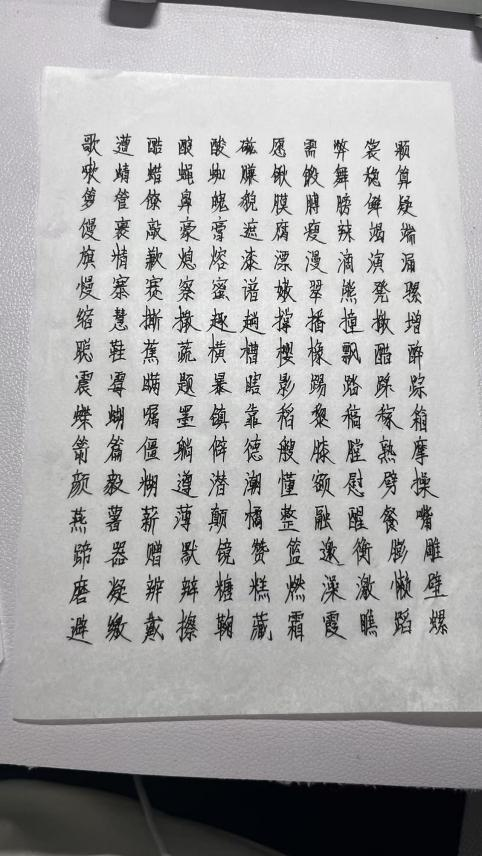 歌 遭 酷 酸 酸 磁 愿 需 弊 裳 颗
嗽 蜻 蜡 蝇 蜘 赚 锹 锻 舞 稳 算
箩 管 僚 鼻 魄 貌 膜 膊 膀 鲜 疑
馒 裹 敲 豪 膏 遮 腐 瘦 辣 竭 端
旗 精 歉 熄 熔 漆 漂 漫 滴 演 漏
慢 寨 赛 察 蜜 谱 嫩 翠 熊 凳 骡
缩 慧 撕 撒 趣 趟 撑 播 撞 撤 增
聪 鞋 蕉 蔬 横 槽 樱 橡 飘 醋 醉
震 霉 瞒 题 暴 瞎 影 踢 踏 踩 踪
蝶 蝴 嘱 墨 镇 靠 稻 黎 稿 稼 箱
箭 篇 僵 躺 僻 德 艘 膝 膛 熟 摩
颜 毅 糊 遵 潜 潮 懂 额 慰 劈 操
燕 薯 薪 薄 颠 橘 整 融 醒 餐 嘴
蹄 器 赠 默 镜 赞 篮 邀 衡 膨 雕
磨 凝 辨 辩 糖 糕 燃 澡 激 懒 壁
避 缴 戴 擦 鞠 藏 霜 霞 瞧 蹈 螺